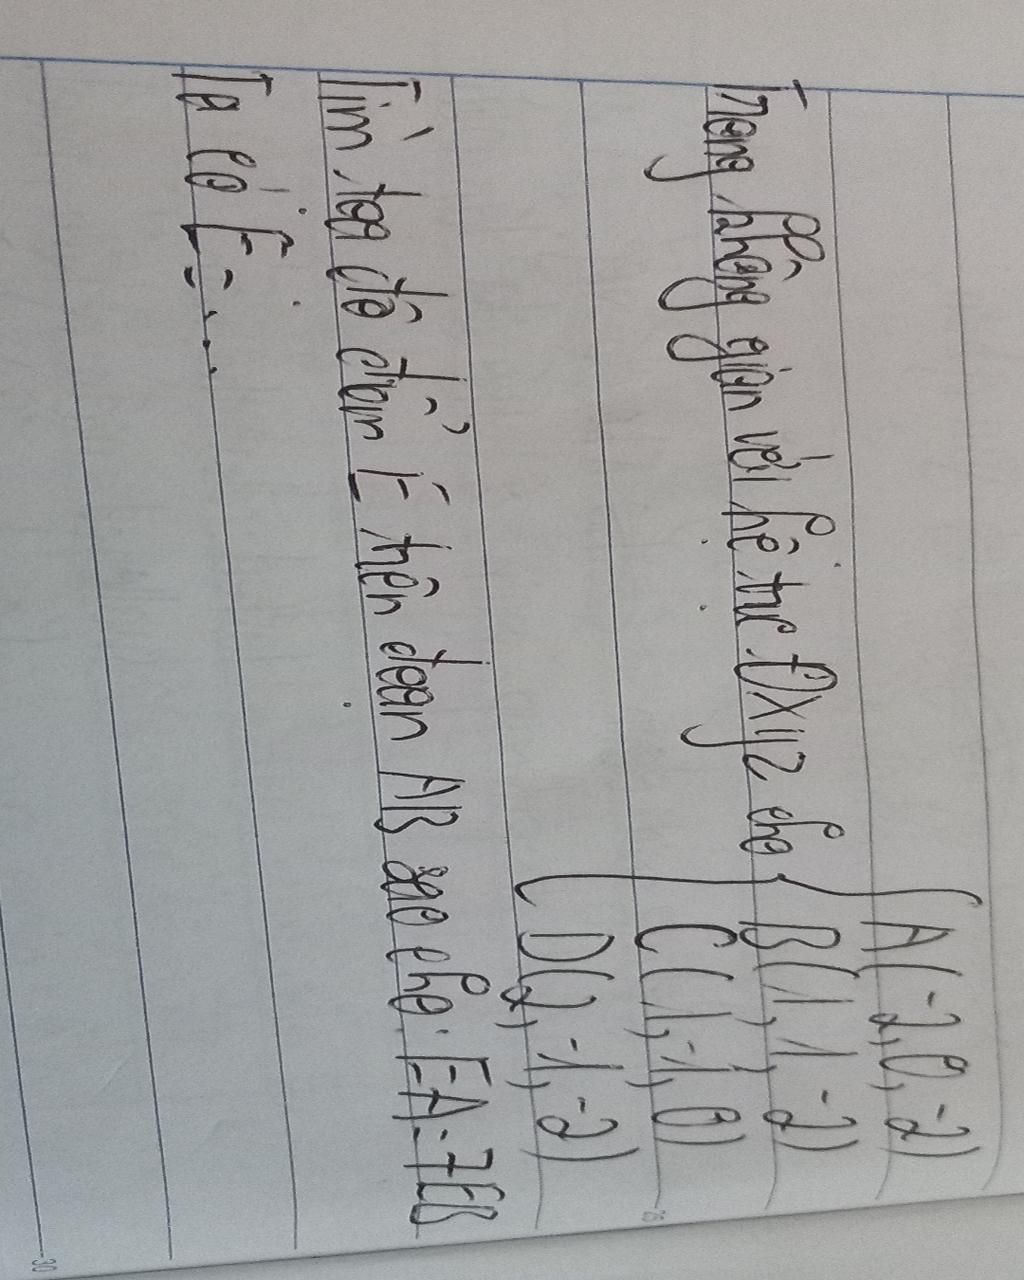 Trong không gian với hệ trục Oxyz cho
A(-2,0,-2)
B(1,1,-2)
C(1,-1,0)
D(2,-1,-2)
Tìm tọa độ điểm E trên đoạn AB sao cho: EA=7EB
Ta có E=...
26
30